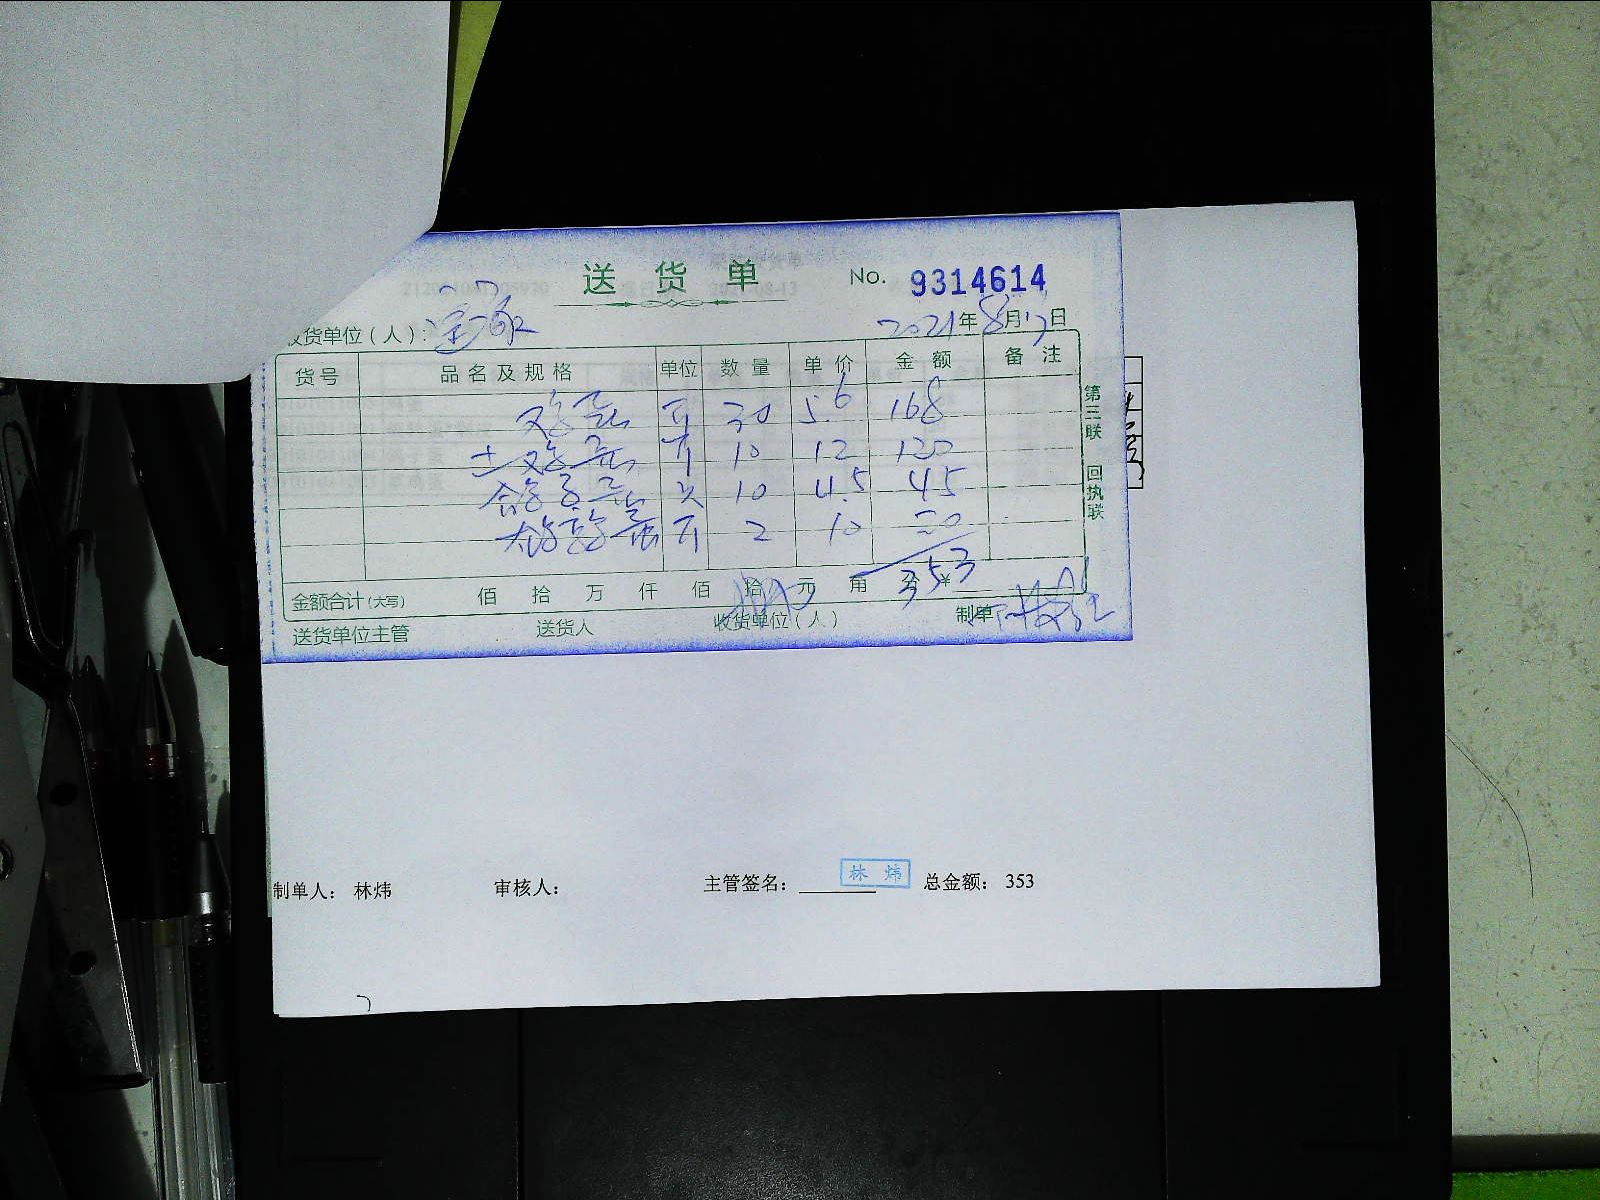 送货单 No. 9314614
货单位（人）：
2021年8月17日
货号 品名及规格 单位 数量 单价 金额 备注
鸡蛋 斤 30 5.6 168
土鸡蛋 斤 10 12 120
10 4.5 45
蛋 斤 2 10 20
353
金额合计(大写) 佰 拾 万 仟 佰 拾 元 角 分 ¥
送货单位主管 送货人 收货单位（人） 制单
第三联 回执联
制单人： 林炜 审核人： 主管签名： 林炜 总金额： 353